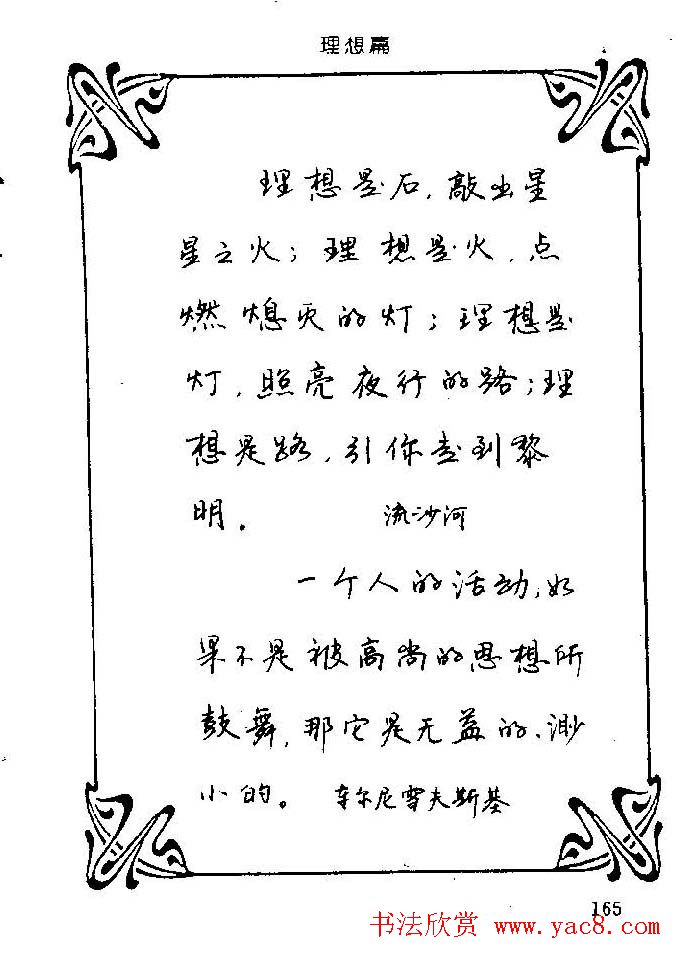 理想篇
理想是石，敲出星
星之火；理想是火，点
燃熄灭的灯；理想是
灯，照亮夜行的路；理
想是路，引你走到黎
明。 流沙河
一个人的活动，如
果不是被高尚的思想所
鼓舞，那它是无益的、渺
小的。 车尔尼雪夫斯基
165
书法欣赏 www.yac8.com